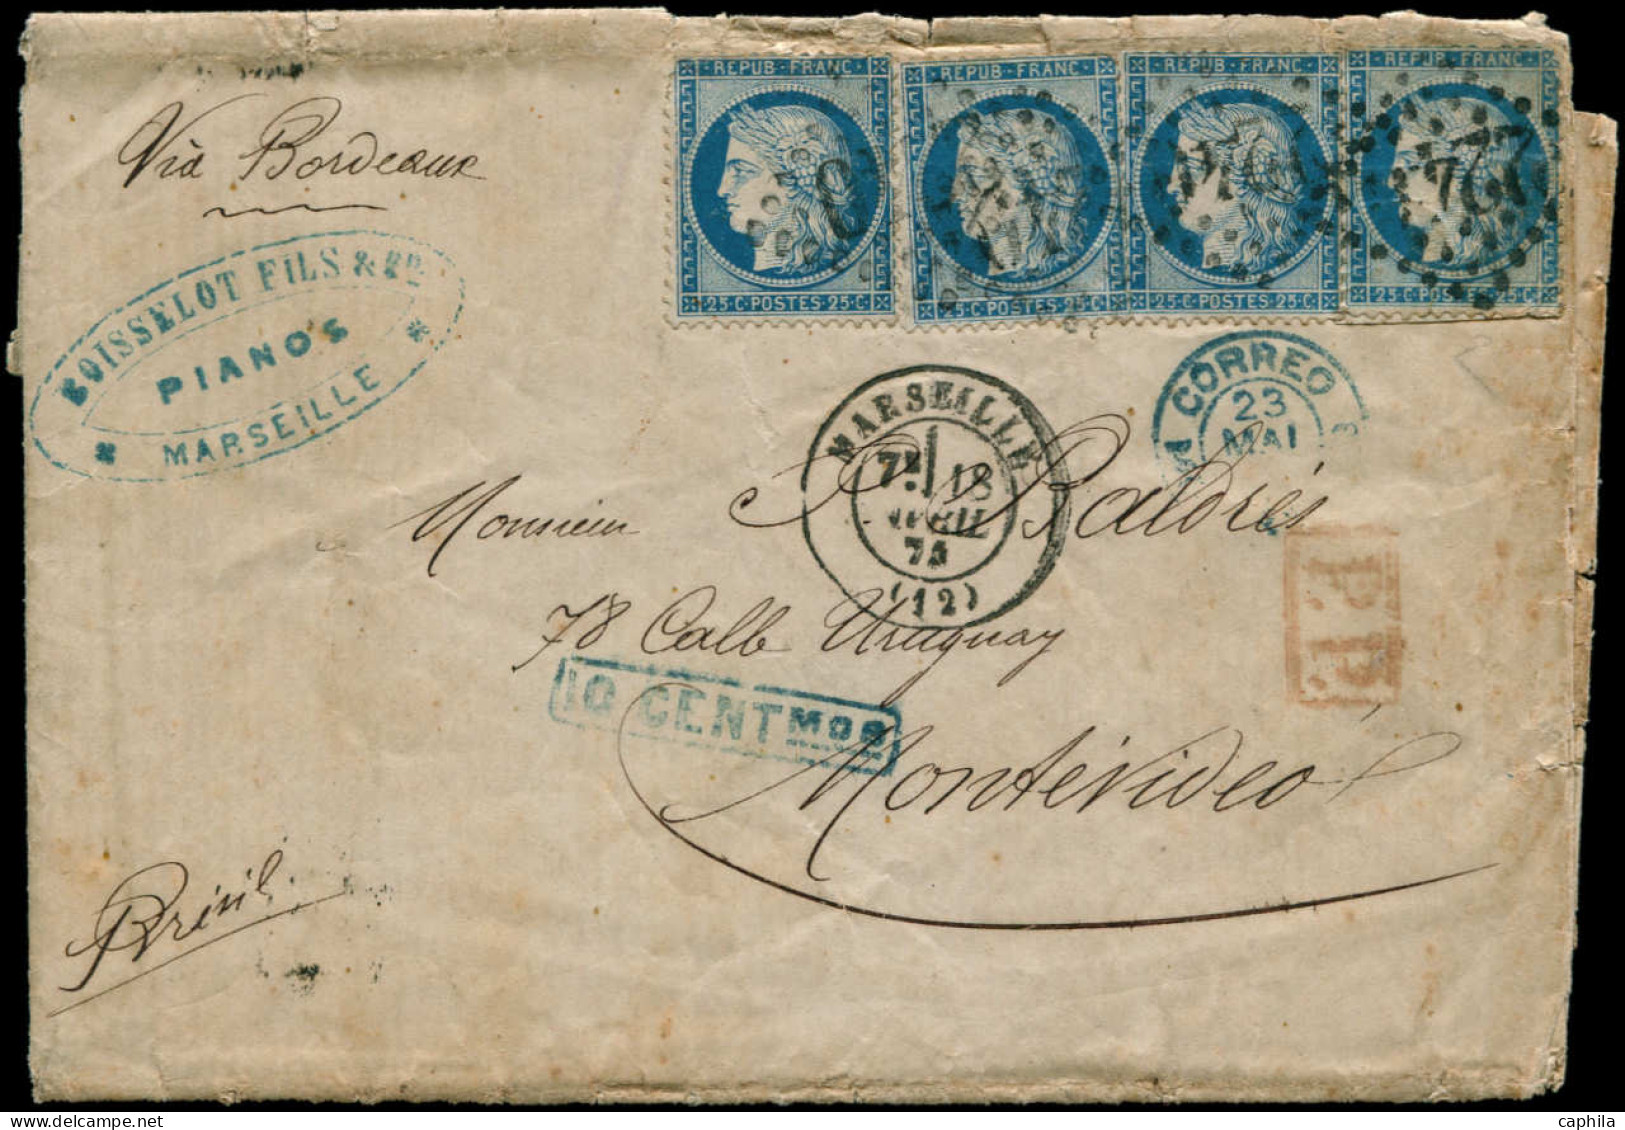 REPUB·FRANC
REPUB·FRANC
REPUB·FRANC
REPUB·FRANC
25·C·POSTES·25·C·
25·C·POSTES·25·C·
25·C·POSTES·25·C·
25·C·POSTES·25·C·
Via Bordeaux
BOISSELOT FILS & Co.
PIANO'S
MARSEILLE
MARSEILLE
7E
18
AVRIL
(12)
CORREO
23
MAI
Monsieur P. Baldrés
P.P.
78 Calle Uruguay
10 CENTMOS
Montévideo
Brésil
caphila